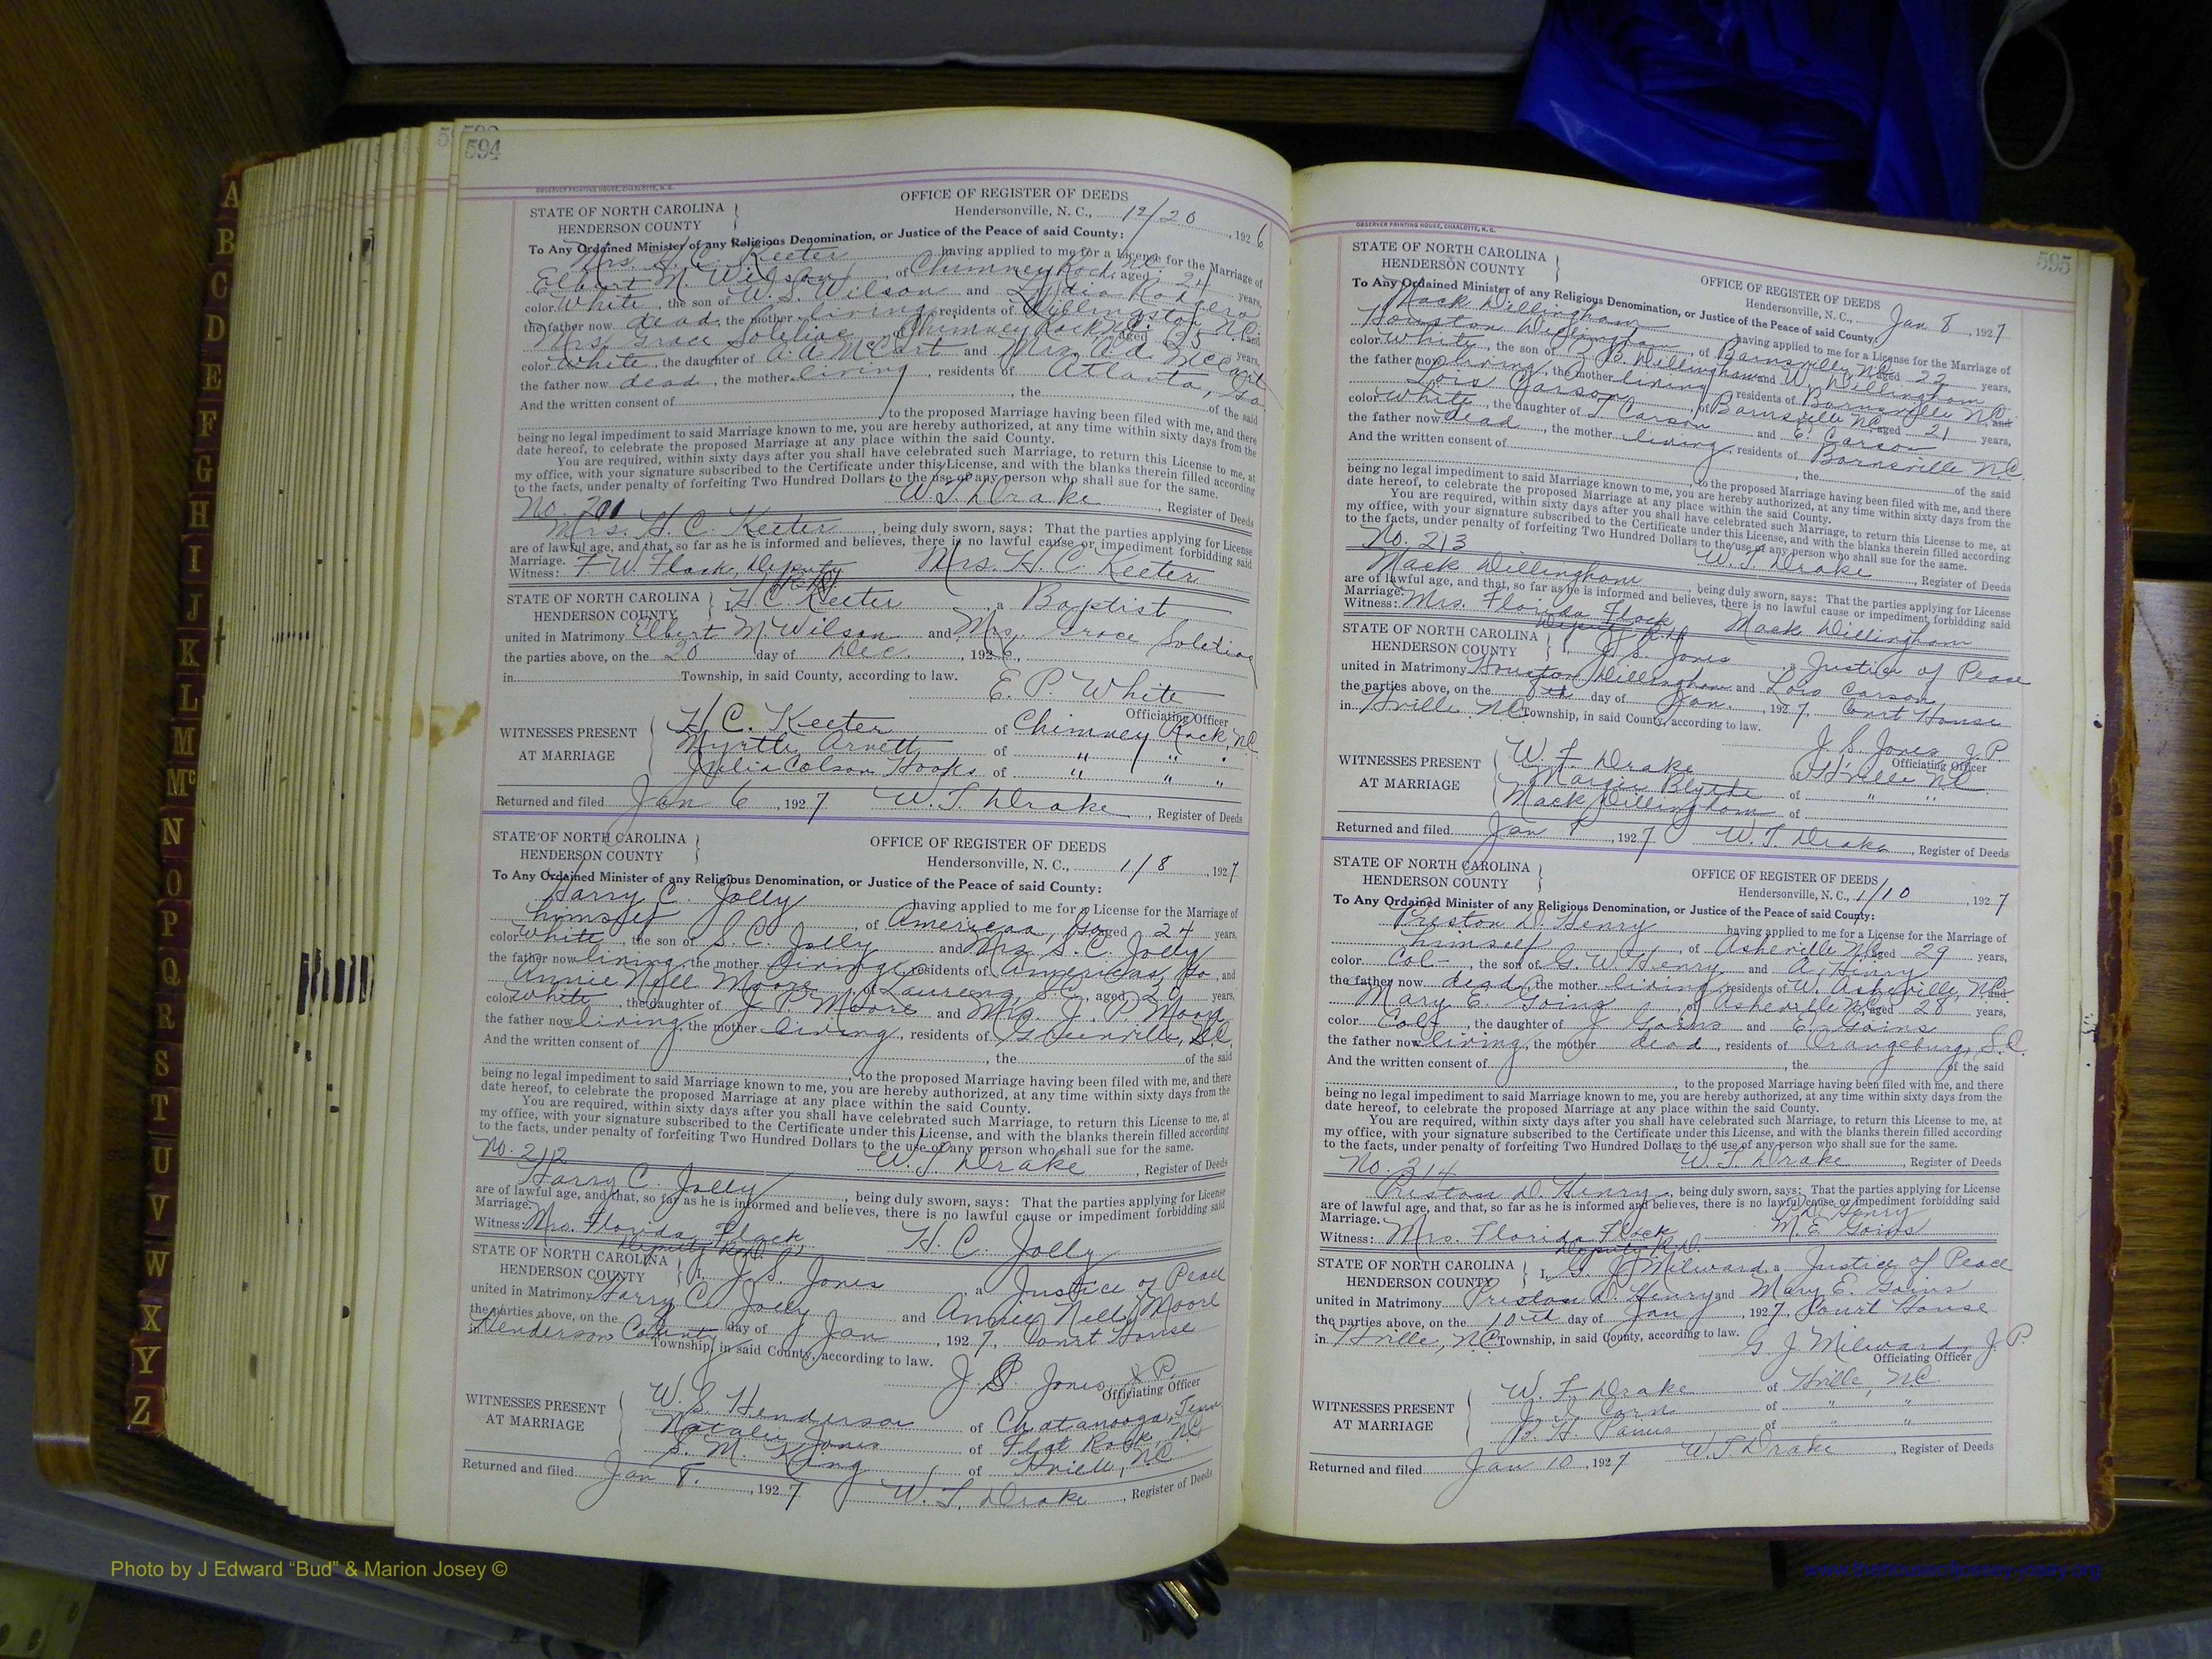 594
OBSERVER PRINTING HOUSE, CHARLOTTE, N. C.
STATE OF NORTH CAROLINA
HENDERSON COUNTY
OFFICE OF REGISTER OF DEEDS
Hendersonville, N. C., 12/20, 1926
To Any Ordained Minister of any Religious Denomination, or Justice of the Peace of said County:
Mrs. H. C. Keeter having applied to me for a License for the Marriage of
Elbert M. Wilson, of Chimney Rock, N.C. aged 24 years,
color White, the son of W. S. Wilson and Lydia Rodgers
the father now dead, the mother living, residents of N.C. and
Mrs. Grace of Chimney Rock N.C. aged 25 years,
color White, the daughter of A. A. McCart and Mrs. A. A. McCart
the father now dead, the mother living, residents of Atlanta, Ga.
And the written consent of , the of the said
to the proposed Marriage having been filed with me, and there
being no legal impediment to said Marriage known to me, you are hereby authorized, at any time within sixty days from the
date hereof, to celebrate the proposed Marriage at any place within the said County.
You are required, within sixty days after you shall have celebrated such Marriage, to return this License to me, at
my office, with your signature subscribed to the Certificate under this License, and with the blanks therein filled according
to the facts, under penalty of forfeiting Two Hundred Dollars to the use of any person who shall sue for the same.
No. W. T. Drake, Register of Deeds
Mrs. H. C. Keeter, being duly sworn, says: That the parties applying for License
are of lawful age, and that, so far as he is informed and believes, there is no lawful cause or impediment forbidding said
Marriage.
Witness: F. W. Flack, Deputy Mrs. H. C. Keeter
STATE OF NORTH CAROLINA
HENDERSON COUNTY
I, H C Keeter, a Baptist
united in Matrimony Elbert M Wilson and Mrs. Grace
the parties above, on the 20 day of Dec., 1926,
in Township, in said County, according to law.
E. P. White
Officiating Officer
WITNESSES PRESENT
AT MARRIAGE
H. C. Keeter of Chimney Rock, NC
Myrtle Arnett of " " "
Julia Colson Hooks of " " "
Returned and filed Jan 6, 1927 W. T. Drake, Register of Deeds
STATE OF NORTH CAROLINA
HENDERSON COUNTY
OFFICE OF REGISTER OF DEEDS
Hendersonville, N. C., 1/8, 1927
To Any Ordained Minister of any Religious Denomination, or Justice of the Peace of said County:
Harry C. Jolly having applied to me for a License for the Marriage of
himself of Americus, Ga aged 24 years,
color White, the son of S. C. Jolly and Mrs S. C. Jolly
the father now living, the mother living, residents of Americus, Ga, and
Annie Nell Moore, of Laurens, S.C., aged 20 years,
color White, the daughter of J. P. Moore and Mrs. J. P. Moore
the father now living, the mother living, residents of Greenville, SC
And the written consent of , the of the said
to the proposed Marriage having been filed with me, and there
being no legal impediment to said Marriage known to me, you are hereby authorized, at any time within sixty days from the
date hereof, to celebrate the proposed Marriage at any place within the said County.
You are required, within sixty days after you shall have celebrated such Marriage, to return this License to me, at
my office, with your signature subscribed to the Certificate under this License, and with the blanks therein filled according
to the facts, under penalty of forfeiting Two Hundred Dollars to the use of any person who shall sue for the same.
No. 212 W. T. Drake, Register of Deeds
Harry C. Jolly, being duly sworn, says: That the parties applying for License
are of lawful age, and that, so far as he is informed and believes, there is no lawful cause or impediment forbidding said
Marriage.
Witness: Mrs. Florida Flack, H. C. Jolly
Deputy R.D.
STATE OF NORTH CAROLINA
HENDERSON COUNTY
I, J. S. Jones a Justice of Peace
united in Matrimony Harry C. Jolly and Annie Nell Moore
the parties above, on the day of Jan, 1927, Court House
in Henderson County Township, in said County, according to law.
J. S. Jones, J. P.
Officiating Officer
WITNESSES PRESENT
AT MARRIAGE
W. S. Henderson of Chatanooga, Tenn
Natalie Jones of Flat Rock, NC
S. M. King of Hville, NC
Returned and filed Jan 8, 1927 W. T. Drake, Register of Deeds
595
OBSERVER PRINTING HOUSE, CHARLOTTE, N. C.
STATE OF NORTH CAROLINA
HENDERSON COUNTY
OFFICE OF REGISTER OF DEEDS
Hendersonville, N. C., Jan 8, 1927
To Any Ordained Minister of any Religious Denomination, or Justice of the Peace of said County:
Mack Dillingham having applied to me for a License for the Marriage of
Houston Dillingham, of Barnsville NC aged 22 years,
color White, the son of Z B. Dillingham and W. Dillingham
the father now living, the mother living, residents of Barnsville N.C. and
Lois Carson, of Barnsville NC aged 21 years,
color White, the daughter of Carson and E. Carson
the father now dead, the mother living, residents of Barnsville N.C.
And the written consent of , the of the said
, to the proposed Marriage having been filed with me, and there
being no legal impediment to said Marriage known to me, you are hereby authorized, at any time within sixty days from the
date hereof, to celebrate the proposed Marriage at any place within the said County.
You are required, within sixty days after you shall have celebrated such Marriage, to return this License to me, at
my office, with your signature subscribed to the Certificate under this License, and with the blanks therein filled according
to the facts, under penalty of forfeiting Two Hundred Dollars to the use of any person who shall sue for the same.
No. 213 W. T. Drake, Register of Deeds
Mack Dillingham, being duly sworn, says: That the parties applying for License
are of lawful age, and that, so far as he is informed and believes, there is no lawful cause or impediment, forbidding said
Marriage.
Witness: Mrs. Florida Flack Mack Dillingham
Deputy R.D.
STATE OF NORTH CAROLINA
HENDERSON COUNTY
I, J. S. Jones, a Justice of Peace
united in Matrimony Houston Dillingham and Lois Carson
the parties above, on the 8th day of Jan., 1927, Court House
in Hville NC Township, in said County, according to law.
J. S. Jones J.P.
Officiating Officer
WITNESSES PRESENT
AT MARRIAGE
W. F. Drake of Hville NC
Margie Blythe of " "
Mack Dillingham of
Returned and filed Jan 8, 1927 W. T. Drake, Register of Deeds
STATE OF NORTH CAROLINA
HENDERSON COUNTY
OFFICE OF REGISTER OF DEEDS
Hendersonville, N. C., 1/10, 1927
To Any Ordained Minister of any Religious Denomination, or Justice of the Peace of said County:
Preston D. Henry having applied to me for a License for the Marriage of
himself, of Asheville NC aged 29 years,
color Col-, the son of G. W. Henry and A. Henry
the father now dead, the mother living, residents of W. Asheville, NC and
Mary E. Goins, of Asheville NC, aged 28 years,
color Col-, the daughter of J Goins and E. Goins
the father now living, the mother dead, residents of Orangeburg, S.C.
And the written consent of , the of the said
, to the proposed Marriage having been filed with me, and there
being no legal impediment to said Marriage known to me, you are hereby authorized, at any time within sixty days from the
date hereof, to celebrate the proposed Marriage at any place within the said County.
You are required, within sixty days after you shall have celebrated such Marriage, to return this License to me, at
my office, with your signature subscribed to the Certificate under this License, and with the blanks therein filled according
to the facts, under penalty of forfeiting Two Hundred Dollars to the use of any person who shall sue for the same.
No. 214 W. T. Drake, Register of Deeds
Preston D. Henry, being duly sworn, says: That the parties applying for License
are of lawful age, and that, so far as he is informed and believes, there is no lawful cause or impediment forbidding said
Marriage. P.D. Henry
Witness: Mrs. Florida Flack M. E. Goins
Deputy R.D.
STATE OF NORTH CAROLINA
HENDERSON COUNTY
I, G. J. Milward, a Justice of Peace
united in Matrimony Preston D. Henry and Mary E. Goins
the parties above, on the 10th day of Jan, 1927, Court House
in Hville, NC Township, in said County, according to law.
G. J. Milward, J. P.
Officiating Officer
WITNESSES PRESENT
AT MARRIAGE
W. F. Drake of Hville, NC.
Corn of " "
B. H. of " "
Returned and filed Jan 10, 1927 W. T. Drake, Register of Deeds
A
B
C
D
E
F
G
H
I
J
K
L
M
Mc
N
O
P
Q
R
S
T
U
V
W
X
Y
Z
Photo by J Edward "Bud" & Marion Josey ©